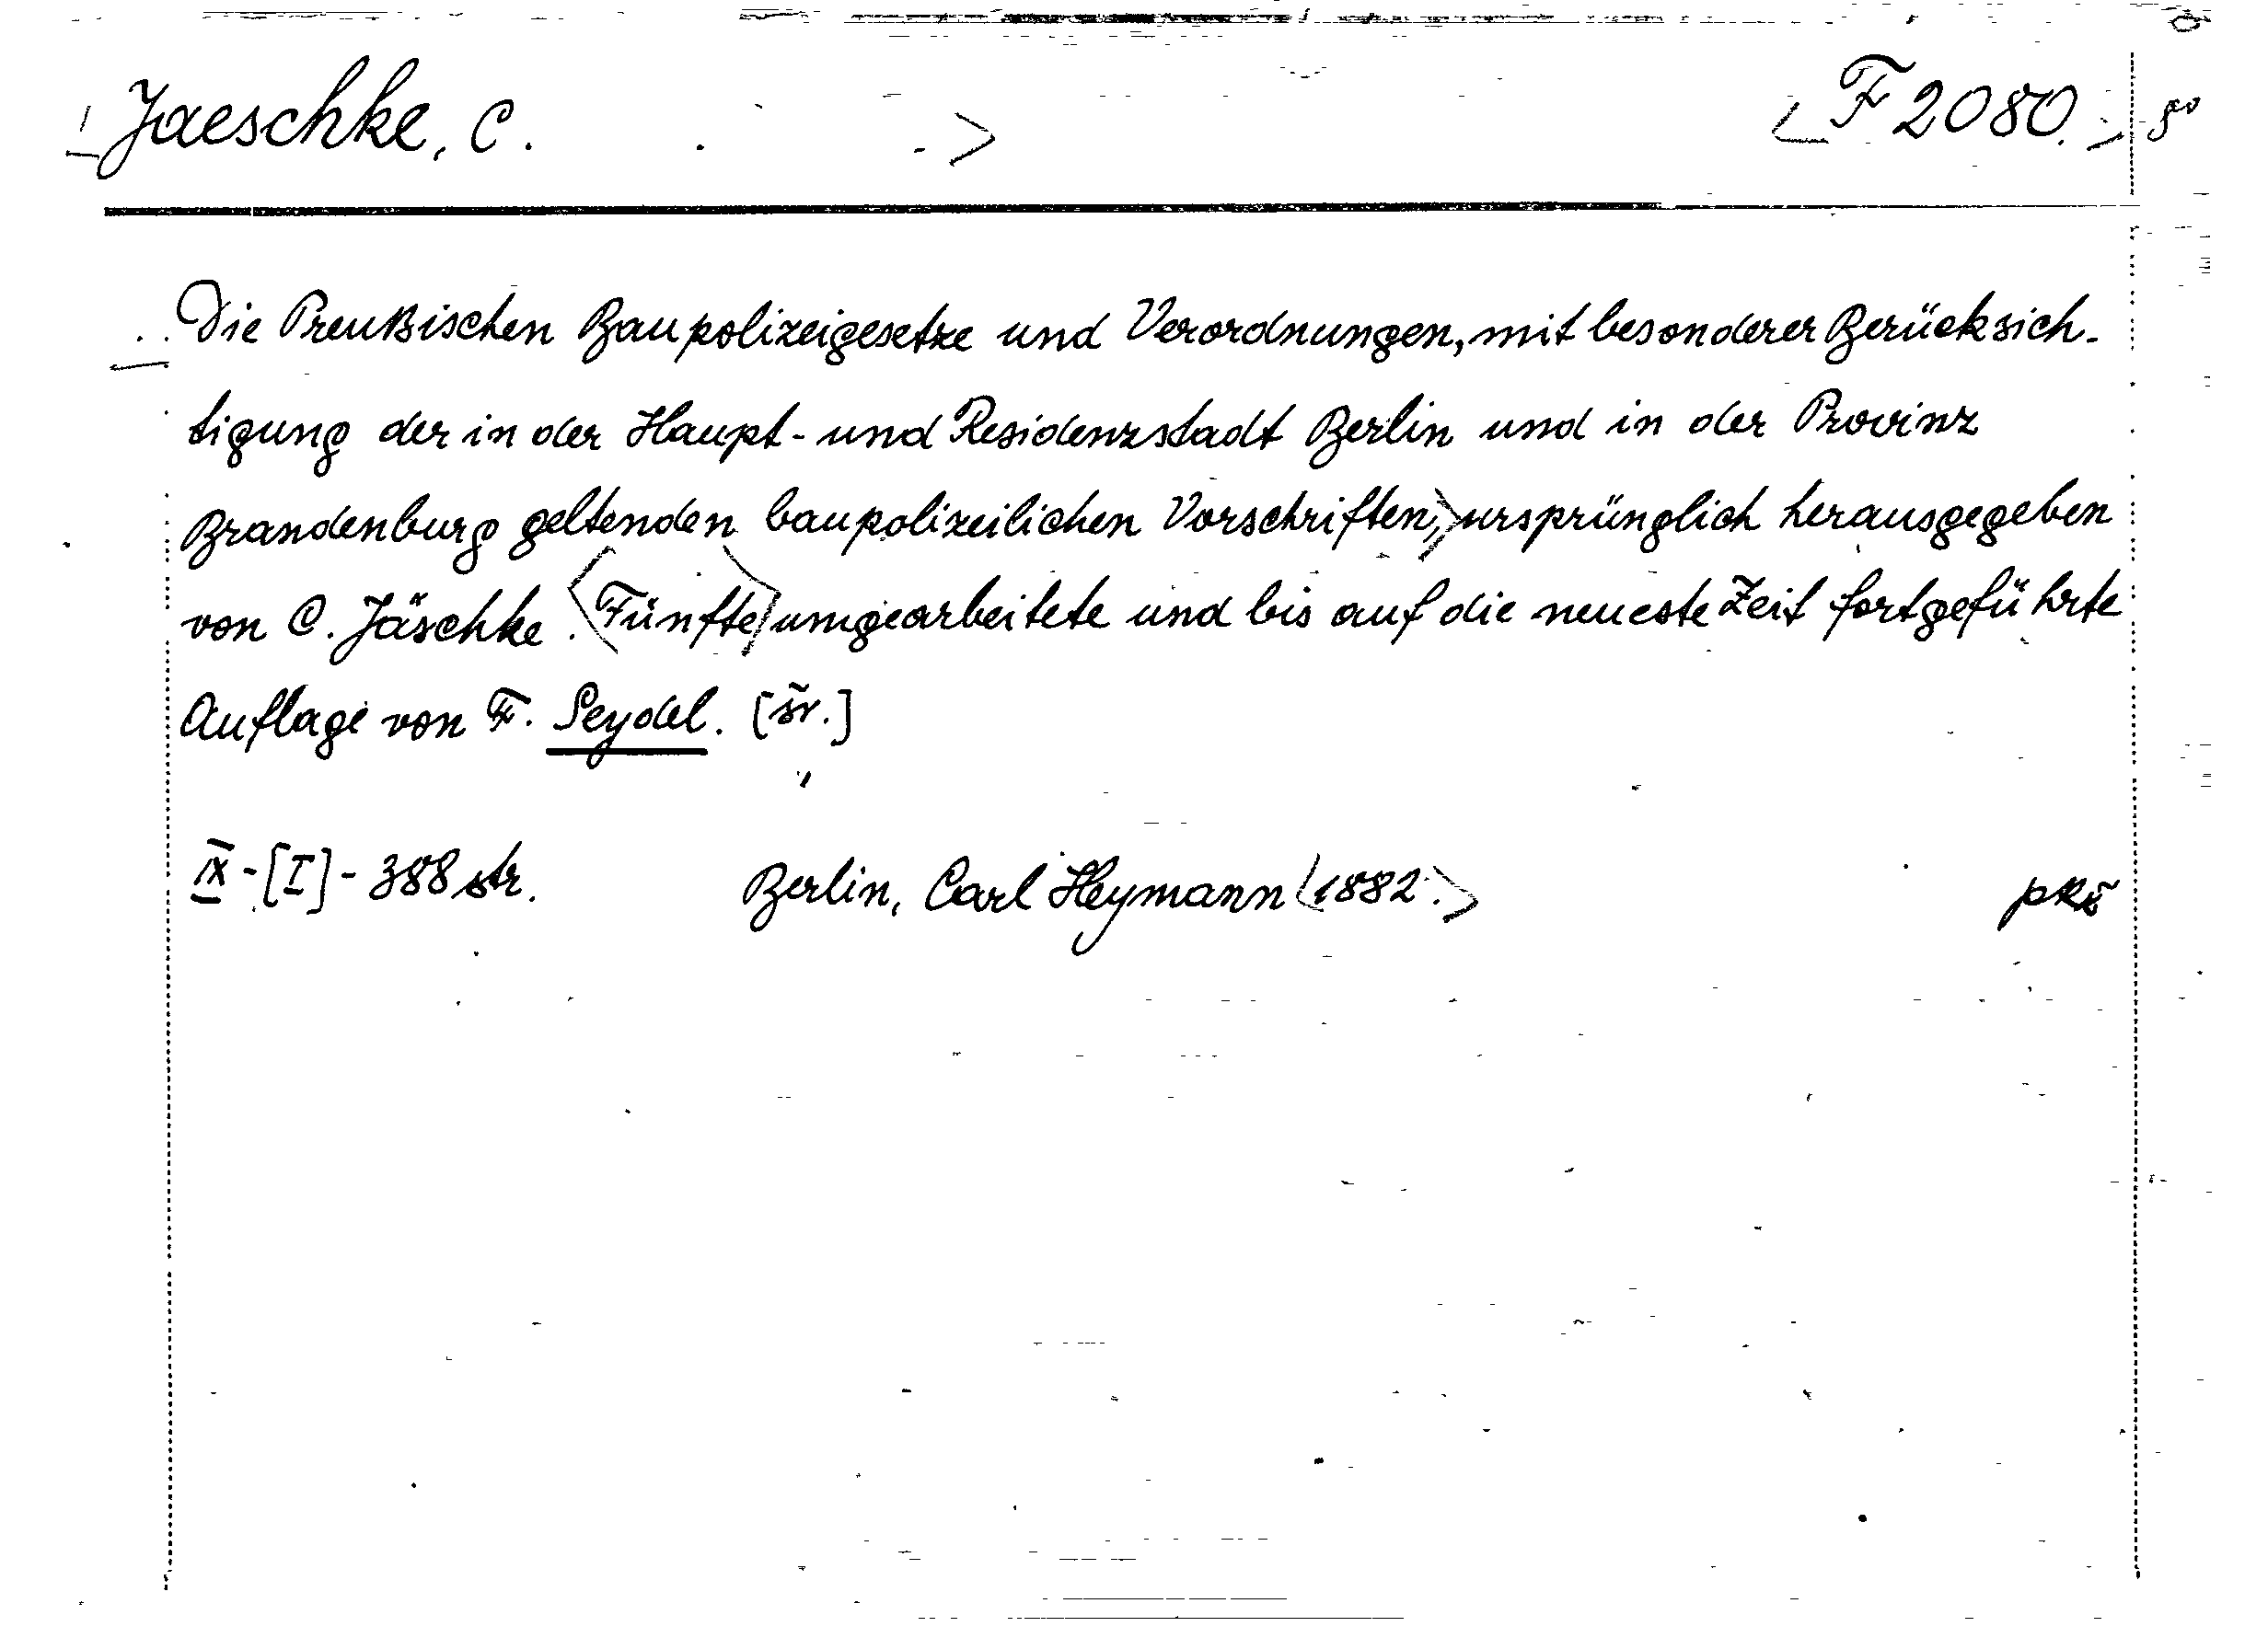 Jaeschke, C. <F 2080.> 8°
Die Preußischen Baupolizeigesetze und Verordnungen, mit besonderer Berücksich-
tigung der in der Haupt- und Residenzstadt Berlin und in der Provinz
Brandenburg geltenden baupolizeilichen Vorschriften, ursprünglich herausgegeben
von C. Jäschke. <Fünfte> umgearbeitete und bis auf die neueste Zeit fortgeführte
Auflage von F. Seydel. [šv.]
IX-[I]-388 str. Berlin, Carl Heymann <1882.> pkž